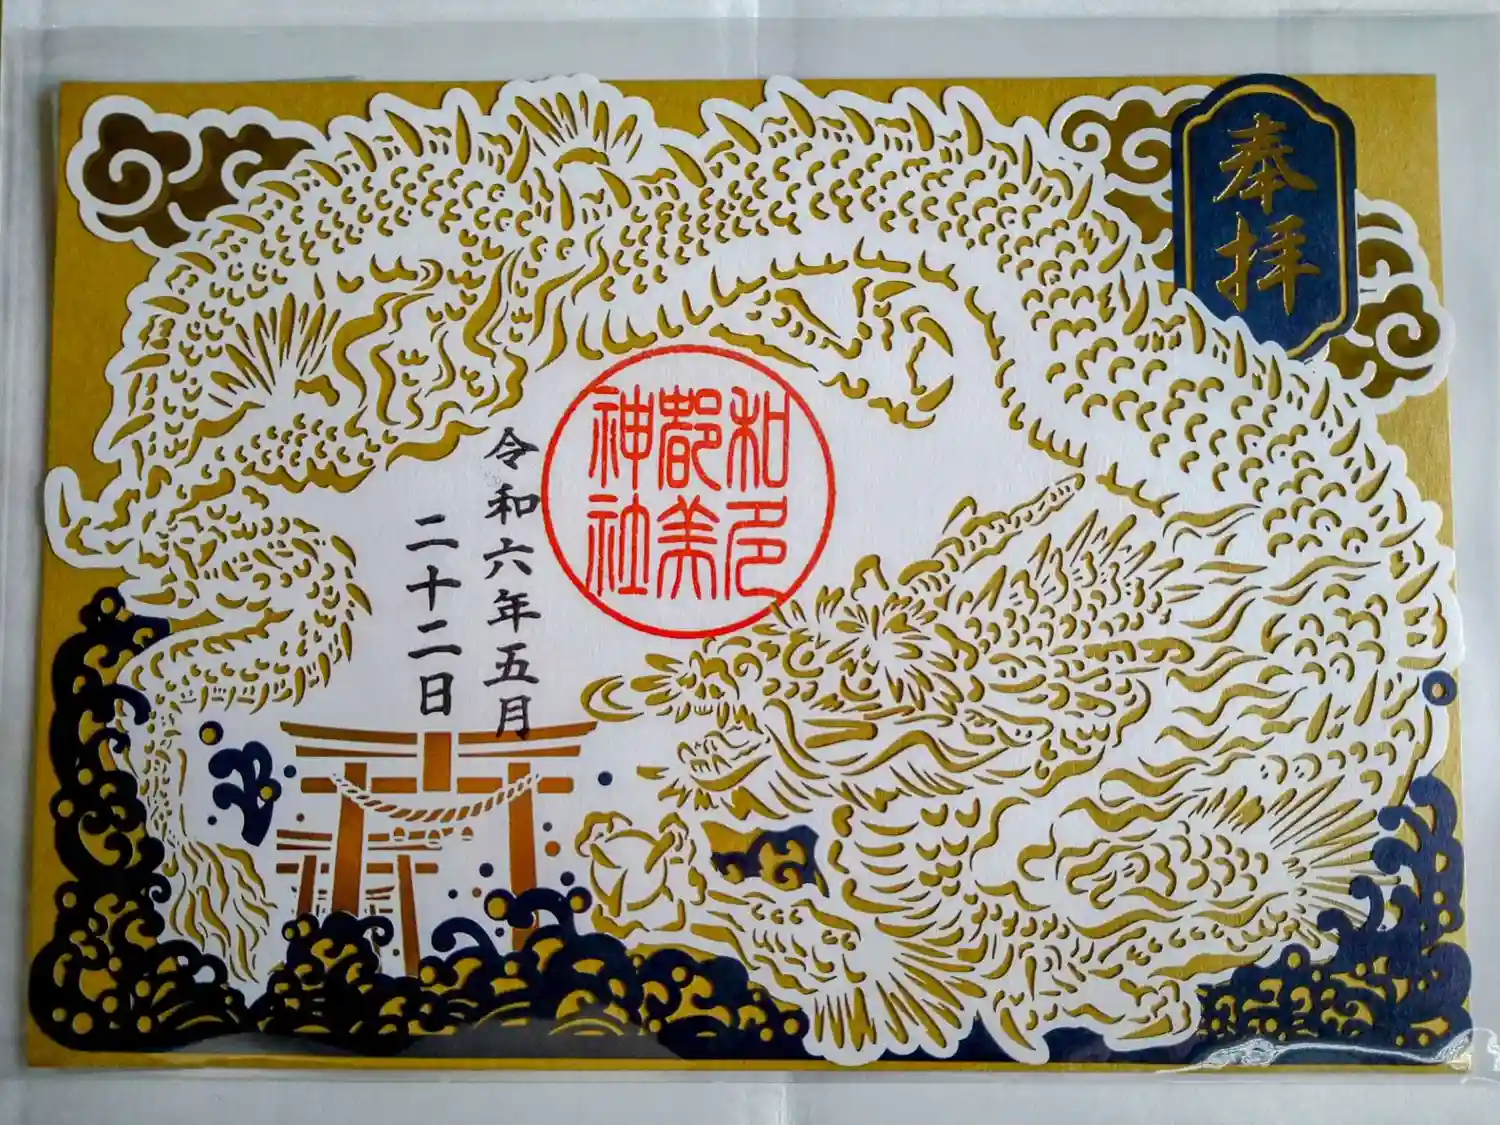 奉拝
和多
都美
神社
令和六年五月
二十二日